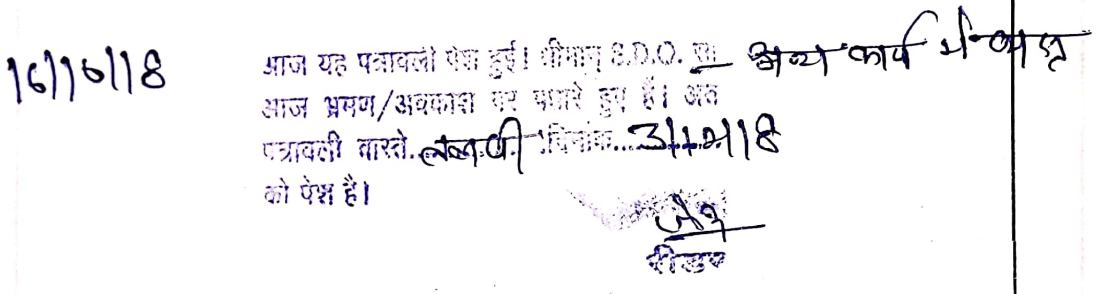 16/10/18 आज यह पत्रावली पेश हुई। श्रीमान् S.D.O. सा. अन्य कार्य में व्यस्त
आज भ्रमण/अवकाश पर पधारे हुए हैं। अत
पत्रावली वास्ते दिनांक
को पेश है।
रीडर